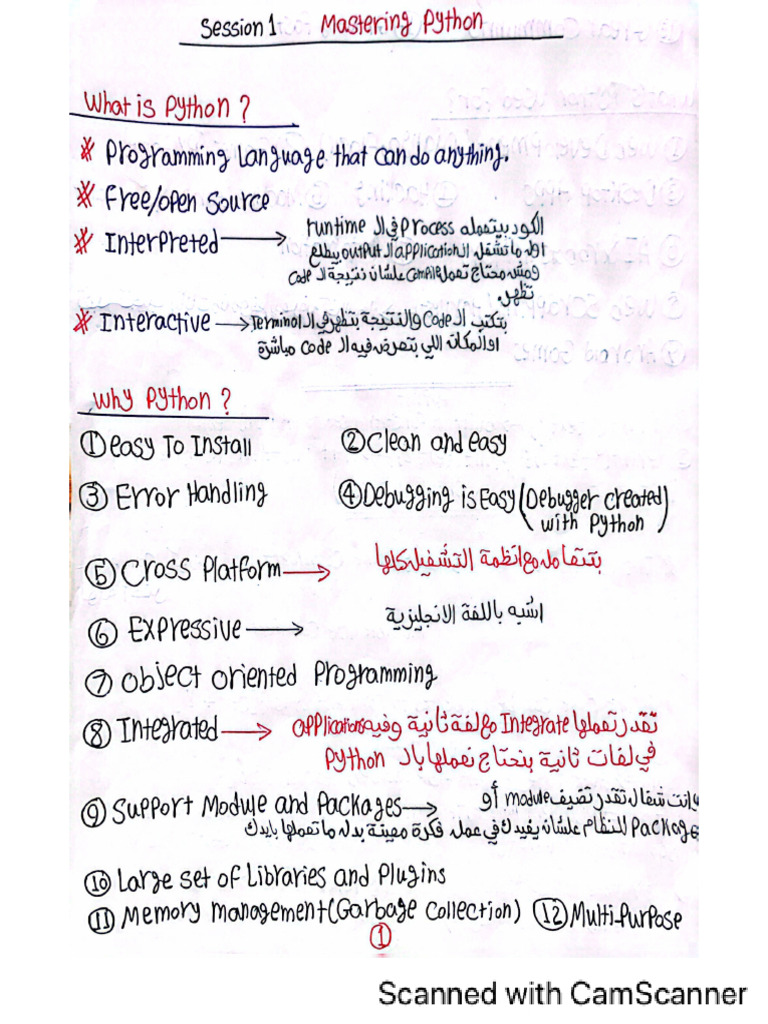 Session 1 Mastering Python
What is Python ?
* Programming Language that can do anything.
* Free/open Source
* Interpreted → الكود بيتعمله Process في الـ runtime
اول ماتشغل الـ Application الـ output بيطلع
ومش محتاج تعمل Compile علشان نتيجة الـ Code
تظهر.
* Interactive → بتكتب الـ Code والنتيجة بتظهر في الـ Terminal
او المكان اللي بتعرض فيه الـ Code مباشرة
Why Python ?
① easy To Install ② Clean and easy
③ Error Handling ④ Debugging is Easy (Debugger created
with Python)
⑤ Cross Platform → بتتعامل مع انظمة التشغيل كلها
⑥ Expressive → اشبه باللغة الانجليزية
⑦ Object oriented Programming
⑧ Integrated → تقدر تعملها Integrate مع لغة ثانية وفيه Applications
في لغات ثانية بنحتاج نعملها بالـ Python
⑨ Support Module and Packages → وانت شغال تقدر تضيف module أو
Package للنظام علشان يفيدك في عمل فكرة معينة بدل ما تعملها بايدك
⑩ Large set of Libraries and Plugins
⑪ Memory management (Garbage Collection) ⑫ Multi-Purpose
①
Scanned with CamScanner